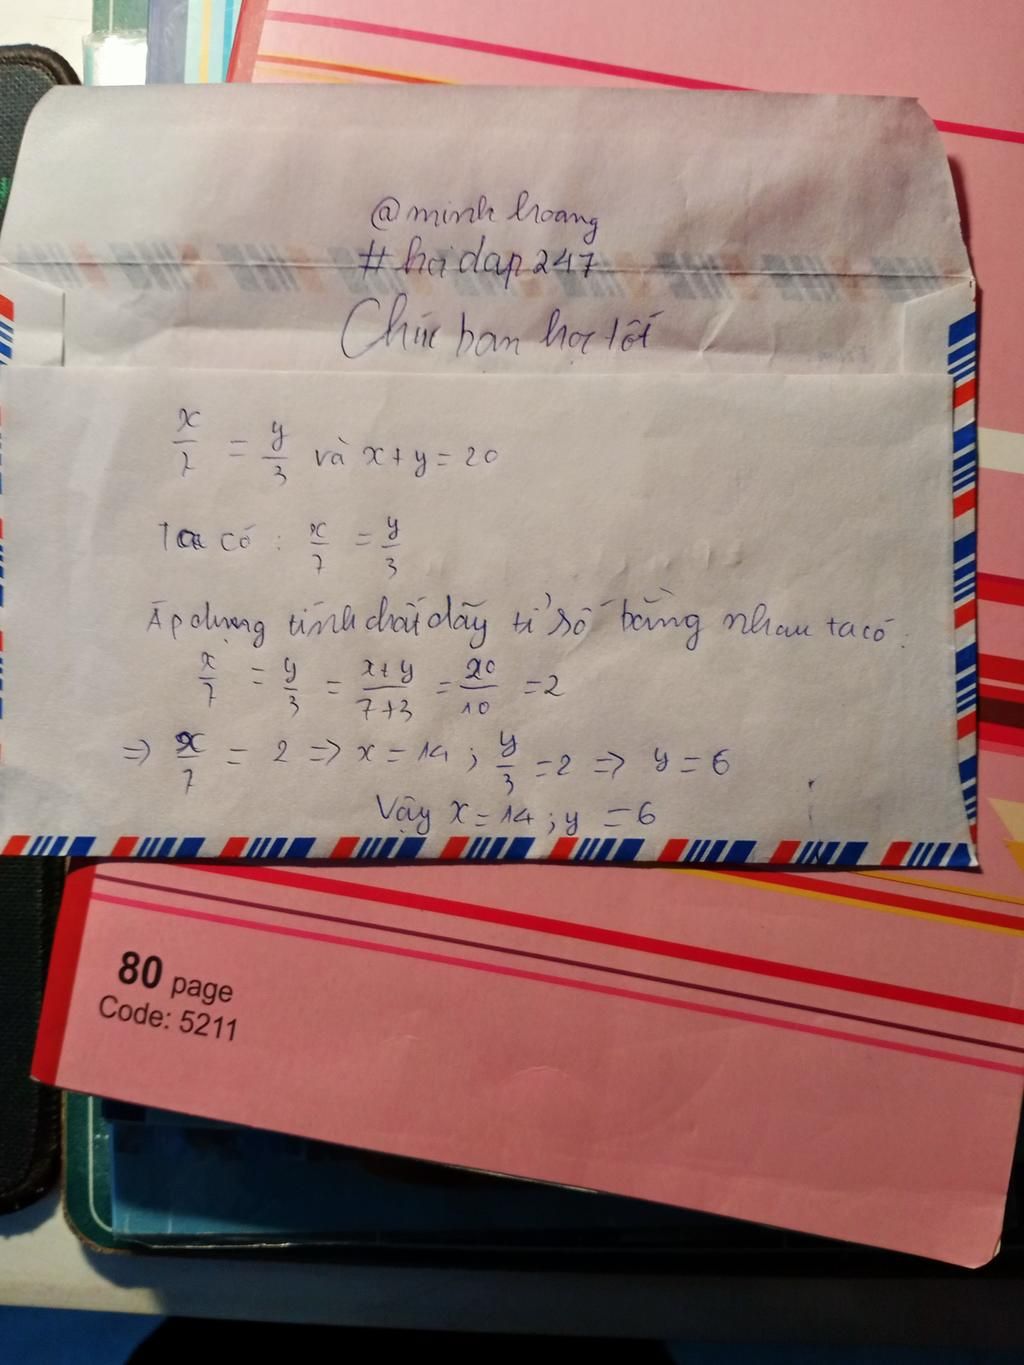 @minh hoang
#hoidap247
Chúc bạn học tốt
x/7 = y/3 và x+y=20
Ta có: x/7 = y/3
Áp dụng tính chất dãy tỉ số bằng nhau ta có:
x/7 = y/3 = x+y/7+3 = 20/10 =2
=> x/7 = 2 => x=14; y/3=2 => y=6
Vậy x=14; y=6
80 page
Code: 5211